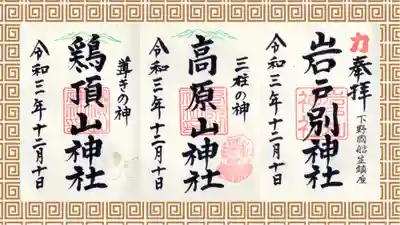 力
奉拝
下野國船生鎮座
岩戸別神社
令和三年十二月十日
三柱の神
高原山神社
令和三年十二月十日
導きの神
鶏頂山神社
令和三年十二月十日